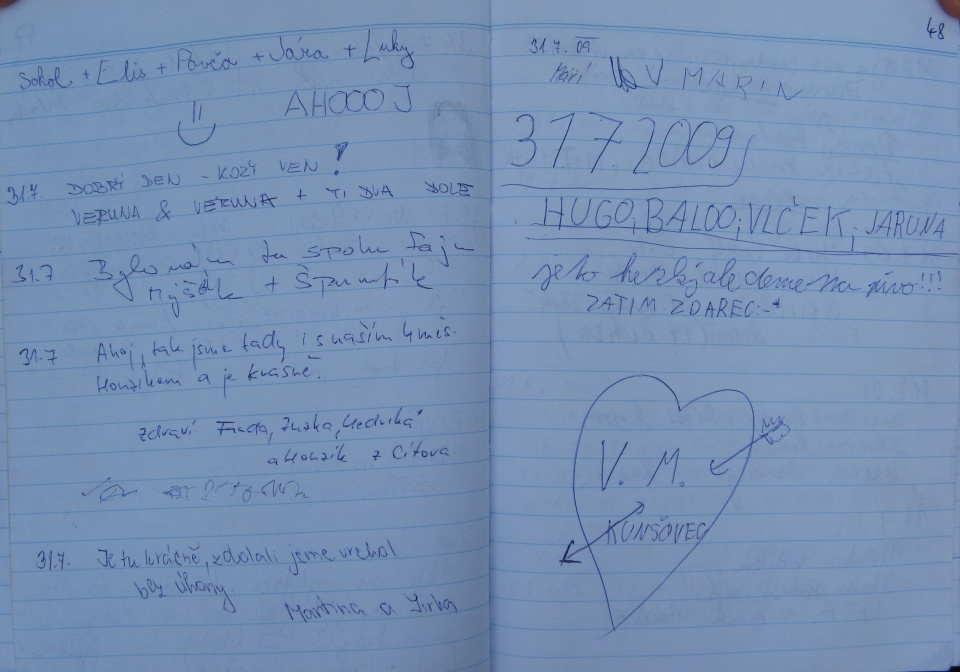 Sokol + Elis + Pavča + Jára + Luky
AHOOOJ
31.7 DOBRÝ DEN - KOZÍ VEN!
VERUNA & VERUNA + TI DVA DOLE
31.7 Bylo nám tu spolu fajn
Myšák + Špuntík
31.7 Ahoj, tak jsme tady i s naším 4měs.
Honzíkem a je krásně.
Zdraví Fanda, Zuzka, Hedvika
a Honzík z Cítova
31.7. Je tu krásně, zdolali jsme vrchol
bez úhony
Martina a Jirka
48
31.7. 09
V MARIN
31.7.2009
HUGO; BALOO; VLČEK; JARUNA
je to hezký ale deme na pivo!!!
ZATIM ZDAREC:-*
V. M.
KUNŠOVEC